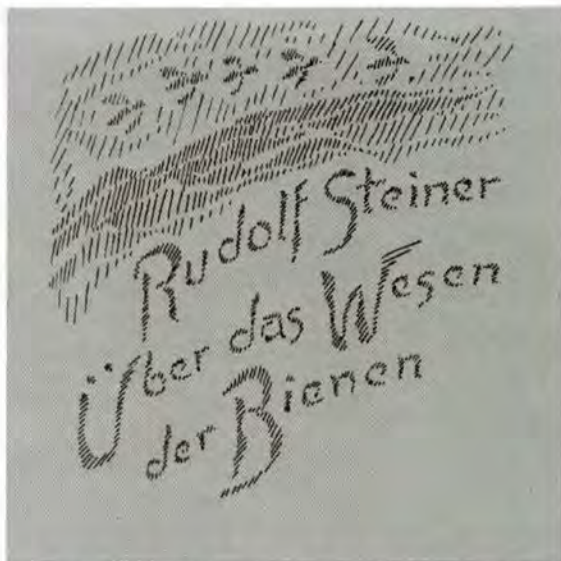 Rudolf Steiner
Über das Wesen
der Bienen